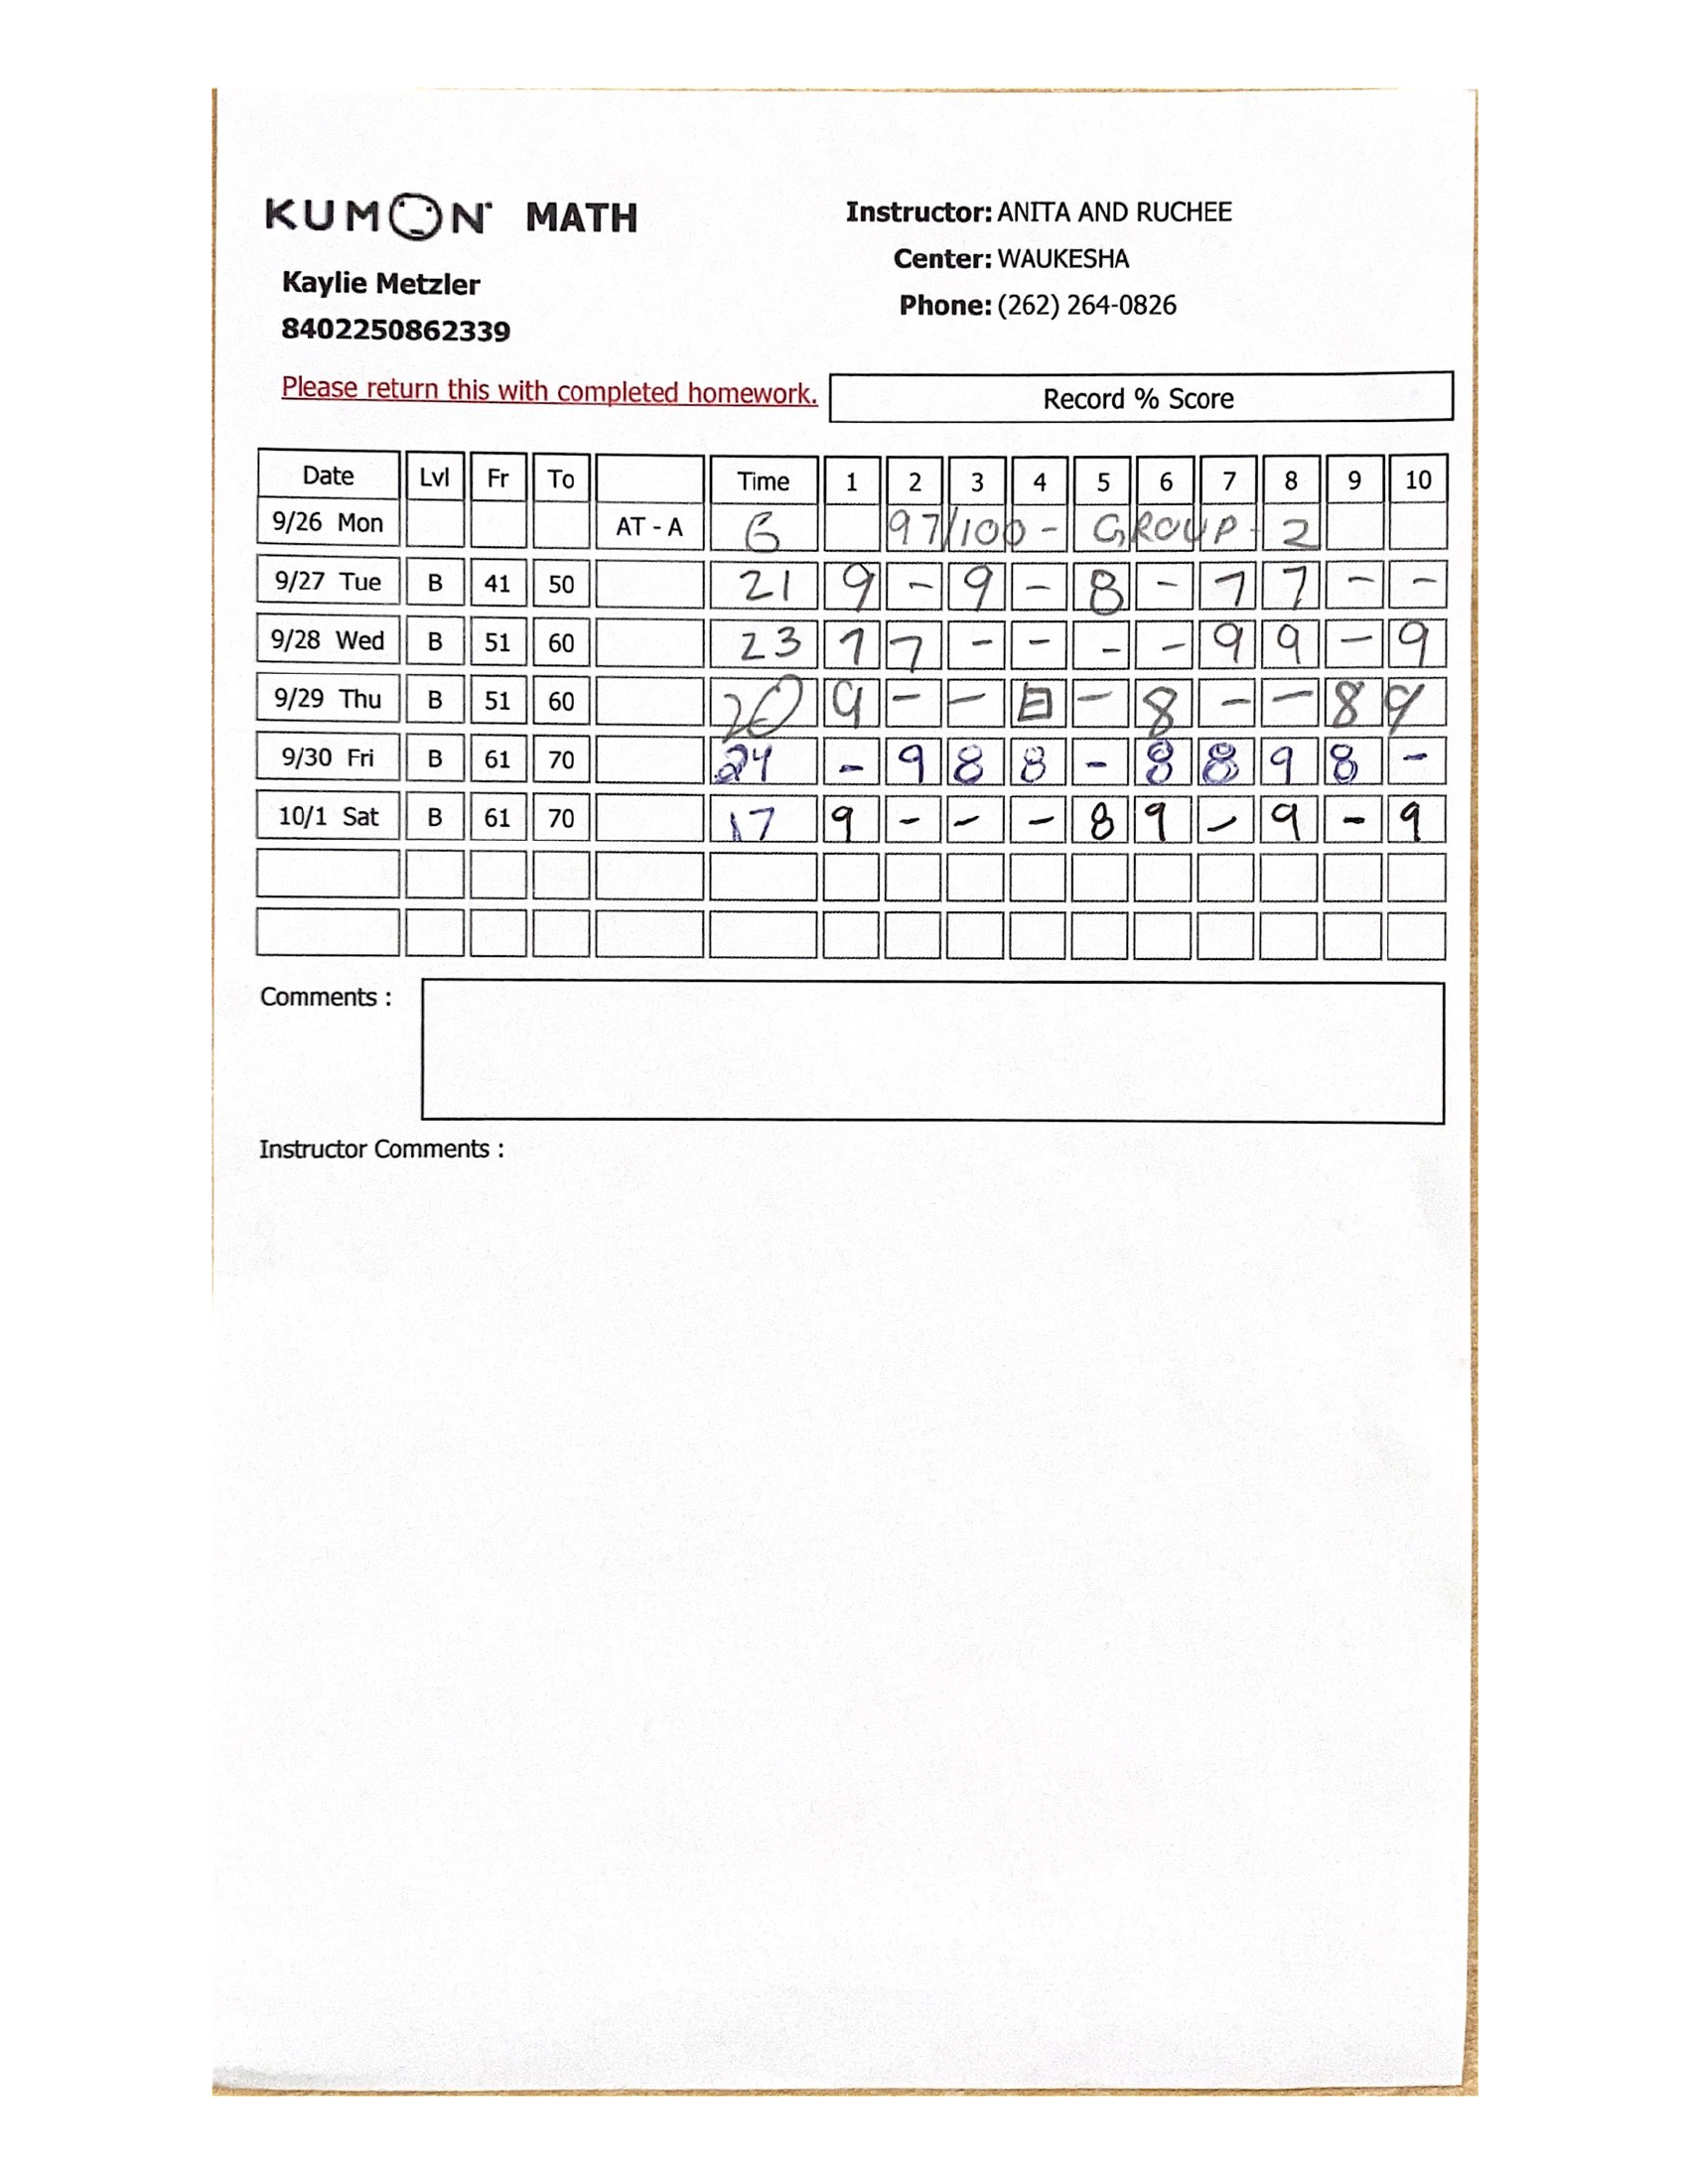 KUMON MATH
Instructor: ANITA AND RUCHEE
Center: WAUKESHA
Phone: (262) 264-0826
Kaylie Metzler
8402250862339
Please return this with completed homework.
Record % Score
Date Lvl Fr To Time 1 2 3 4 5 6 7 8 9 10
9/26 Mon AT - A 6 97/100 - GROUP - 2
9/27 Tue B 41 50 21 9 - 9 - 8 - 7 7 - -
9/28 Wed B 51 60 23 7 7 - - - - 9 9 - 9
9/29 Thu B 51 60 20 9 - - - 8 - - 8 9
9/30 Fri B 61 70 24 - 9 8 8 - 8 8 9 8 -
10/1 Sat B 61 70 17 9 - - - 8 9 - 9 - 9
Comments :
Instructor Comments :